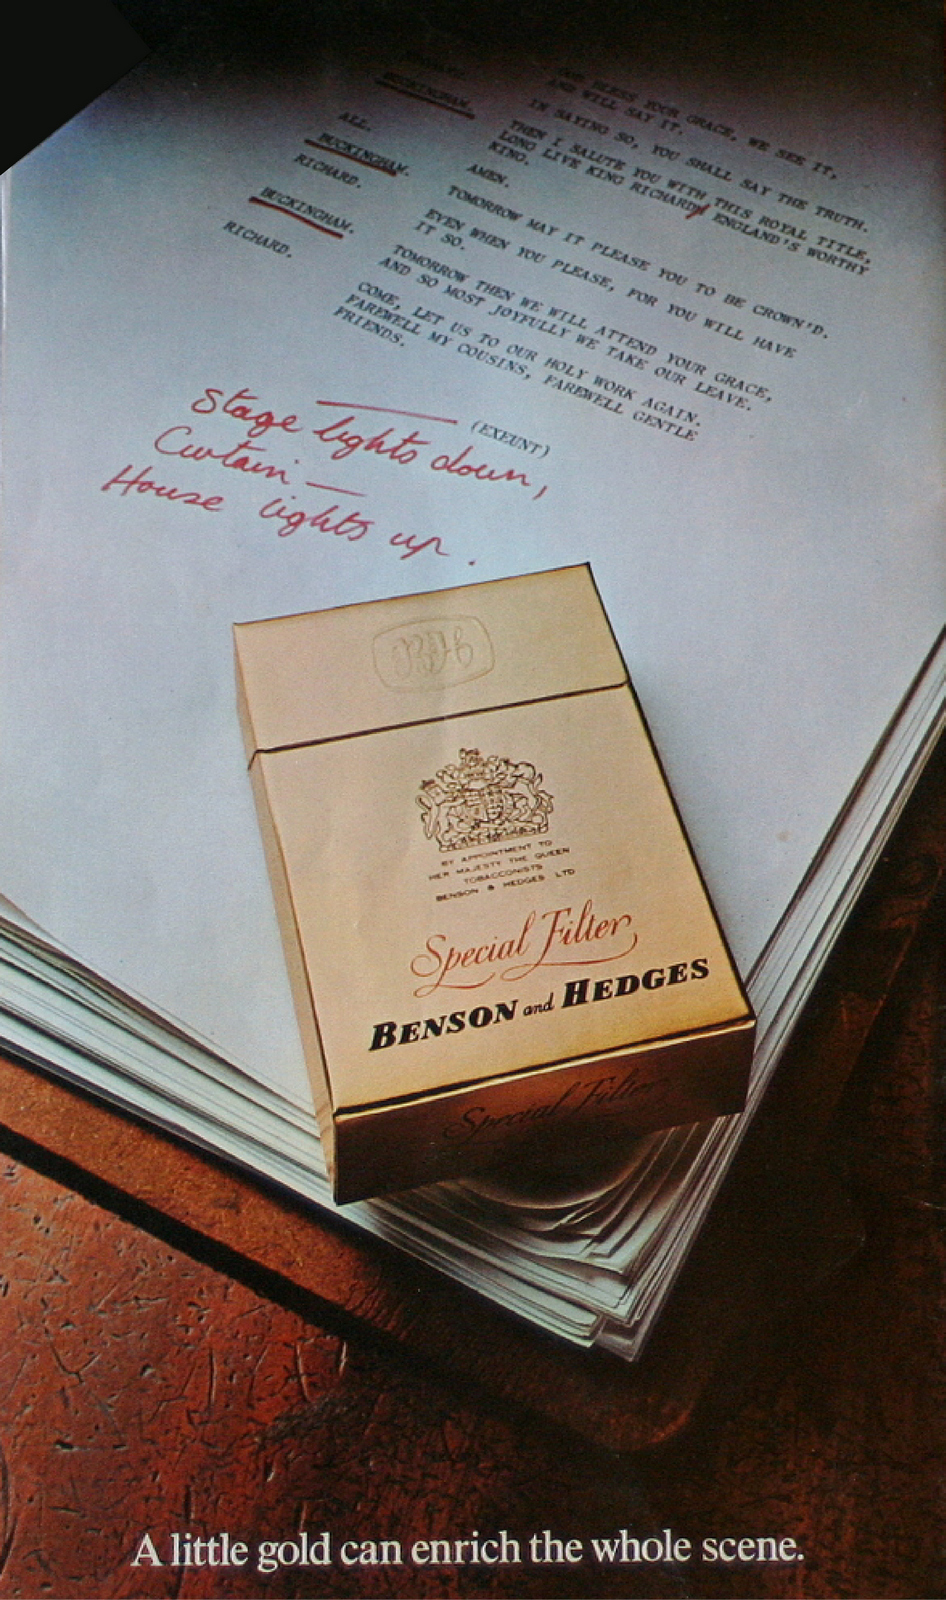 BUCKINGHAM.
GOD BLESS YOUR GRACE, WE SEE IT,
AND WILL SAY IT.
IN SAYING SO, YOU SHALL SAY THE TRUTH.
THEN I SALUTE YOU WITH THIS ROYAL TITLE,
LONG LIVE KING RICHARD, ENGLAND'S WORTHY
KING.
ALL. AMEN.
BUCKINGHAM. TOMORROW MAY IT PLEASE YOU TO BE CROWN'D.
RICHARD. EVEN WHEN YOU PLEASE, FOR YOU WILL HAVE
IT SO.
BUCKINGHAM. TOMORROW THEN WE WILL ATTEND YOUR GRACE,
AND SO MOST JOYFULLY WE TAKE OUR LEAVE.
RICHARD. COME, LET US TO OUR HOLY WORK AGAIN.
FAREWELL MY COUSINS, FAREWELL GENTLE
FRIENDS.
(EXEUNT)
Stage lights down,
Curtain —
House lights up.
B&H
BY APPOINTMENT TO
HER MAJESTY THE QUEEN
TOBACCONISTS
BENSON & HEDGES LTD
Special Filter
BENSON and HEDGES
Special Filter
A little gold can enrich the whole scene.